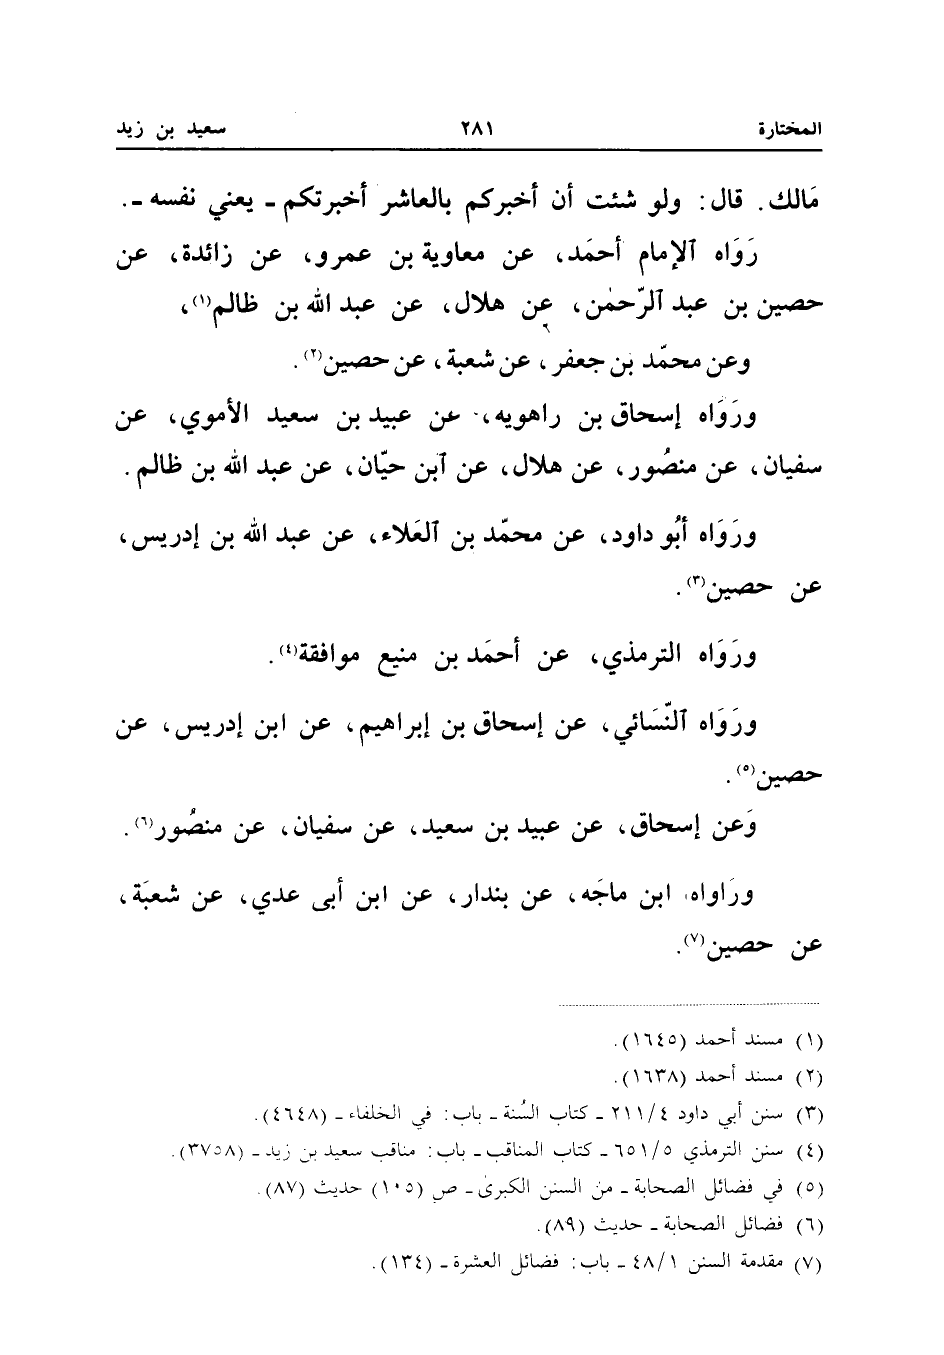 المختارة ٢٨١ سعيد بن زيد
مَالك. قال: ولو شئت أن أخبركم بالعاشر أخبرتكم ـ يعني نفسه ـ.
رَوَاه ٱلإمام أحمَد، عن معاوية بن عمرو، عن زائدة، عن
حصين بن عبد ٱلرّحمٰن، عن هلال، عن عبد الله بن ظالم(١)،
وعن محمّد بن جعفر، عن شعبة، عن حصين(٢).
ورَوَاه إسحاق بن راهويه، عن عبيد بن سعيد الأموي، عن
سفيان، عن منصُور، عن هلال، عن ٱبن حيّان، عن عبد الله بن ظالم.
ورَوَاه أبُو داود، عن محمّد بن ٱلعَلاء، عن عبد الله بن إدريس،
عن حصين(٣).
ورَوَاه الترمذي، عن أحمَد بن منيع موافقة(٤).
ورَوَاه ٱلنّسَائي، عن إسحاق بن إبراهيم، عن ابن إدريس، عن
حصين(٥).
وَعن إسحاق، عن عبيد بن سعيد، عن سفيان، عن منصُور(٦).
ورَاواه ابن ماجَه، عن بندار، عن ابن أبى عدي، عن شعبَة،
عن حصين(٧).
(١) مسند أحمد (١٦٤٥).
(٢) مسند أحمد (١٦٣٨).
(٣) سنن أبي داود ٢١١/٤ ـ كتاب السُنة ـ باب: في الخلفاء ـ (٤٦٤٨).
(٤) سنن الترمذي ٦٥١/٥ ـ كتاب المناقب ـ باب: مناقب سعيد بن زيد ـ (٣٧٥٨).
(٥) في فضائل الصحابة ـ من السنن الكبرىٰ ـ ص (١٠٥) حديث (٨٧).
(٦) فضائل الصحابة ـ حديث (٨٩).
(٧) مقدمة السنن ٤٨/١ ـ باب: فضائل العشرة ـ (١٣٤).